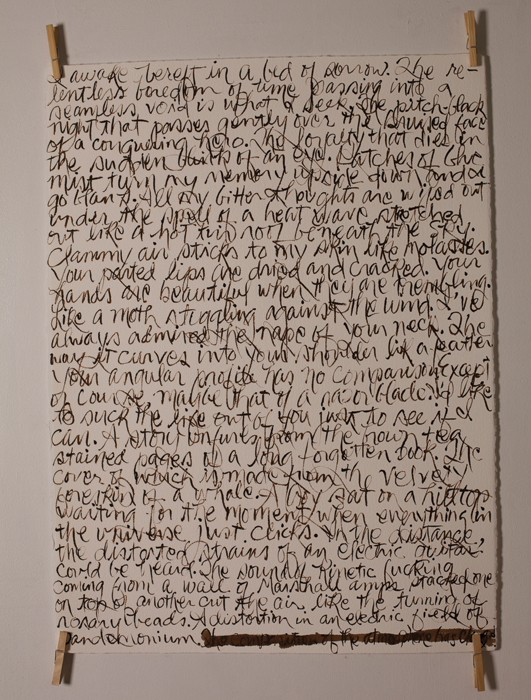 I awake bereft in a bed of sorrow. The re-
lentless boredom of time passing into a
seamless void is what I seek. The pitch-black
night that passes gently over the bruised face
of a conquering hero. The loyalty that dies in
the sudden of an eye. Patches of blue
mist turn my memory upside down and
go blank. All my bitter thoughts are wiped out
under the spell of a heat wave stretched
out like a hot tin roof beneath the sky.
Clammy air sticks to my skin like molasses.
Your parted lips are dried and cracked. Your
hands are beautiful when they are trembling.
Like a moth struggling against the wind. I've
always admired the nape of your neck. The
way it curves into your shoulder like a feather
Your angular profile has no comparison except
of course, maybe that of a razor blade. I like
to suck the life out of you just to see if I
can. A story unfurls from the brown tea
stained pages of a long forgotten book. The
cover of which is made from the velvety
foreskin of a whale. A boy sat on a hilltop
waiting for the moment when everything in
the universe just clicks. In the distance,
the distorted strains of an electric guitar
could be heard. The sound, kinetic fucking
coming from a wall of Marshall amps stacked one
on top of another cut the air like the turning of
rosary beads. A distortion in an electric field of
pandemonium. The of the atmosphere itself